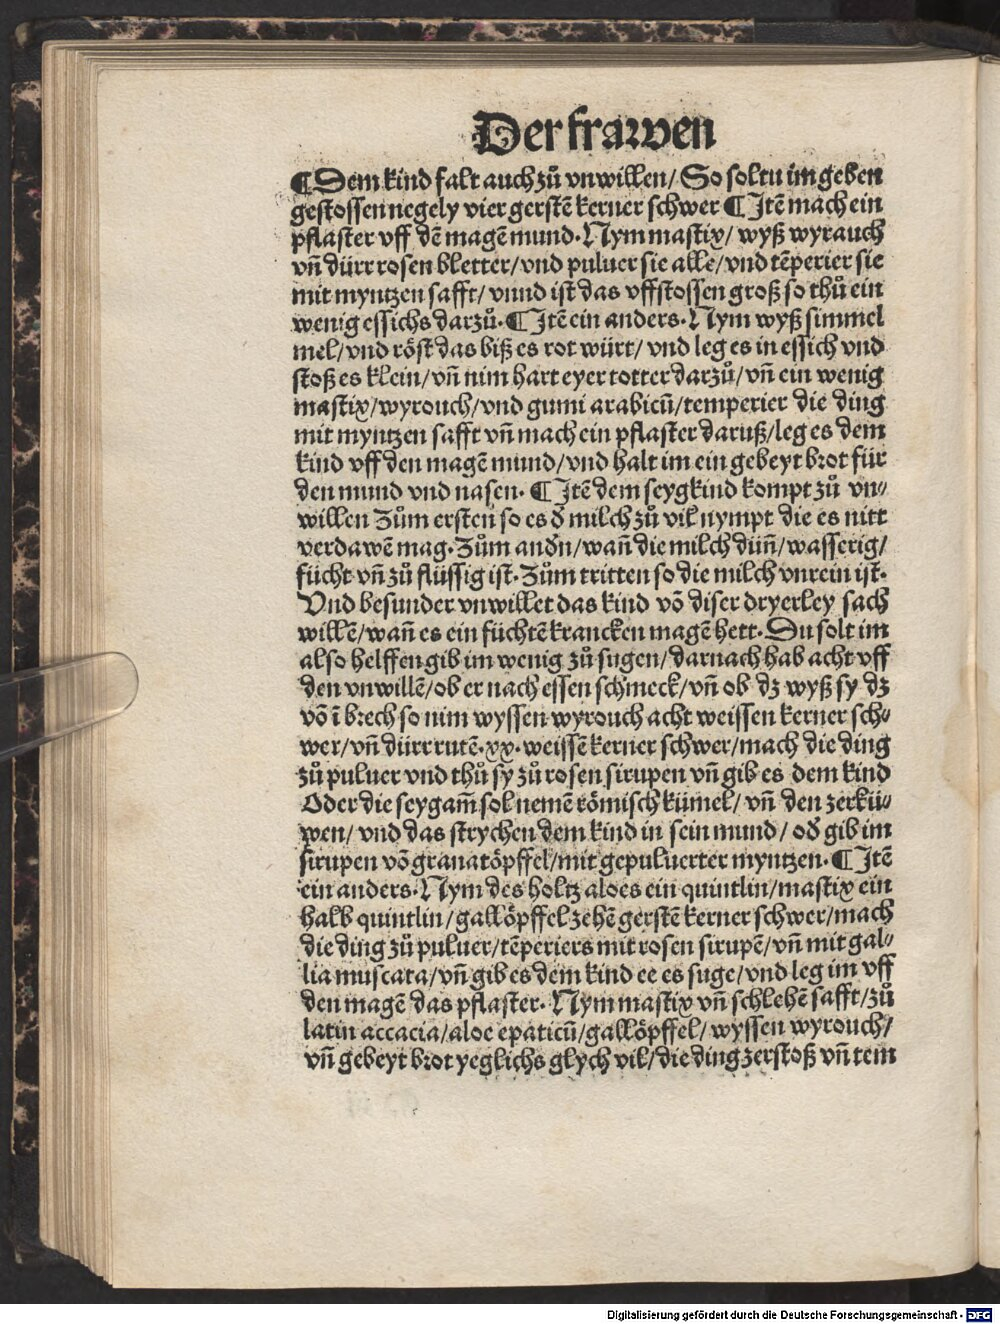 Der frawen
¶ Dem kind falt auch zů vnwillen/ So soltu im geben
gestossen negely vier gerstē kerner schwer ¶ Jtē mach ein
pflaster vff dē magē mund. Nym mastix/ wyß wyrauch
vñ dürr rosen bletter/ vnd puluer sie alle/ vnd tēperier sie
mit myntzen safft/ vnnd ist das vffstossen groß so thů ein
wenig essichs darzů. ¶ Jtē ein anders. Nym wyß simmel
mel/ vnd röst das biß es rot würt/ vnd leg es in essich vnd
stoß es klein/ vñ nim hart eyer totter darzů/ vñ ein wenig
mastix/ wyrouch/ vnd gumi arabicū/ temperier die ding
mit myntzen safft vñ mach ein pflaster daruß/ leg es dem
kind vff den magē mund/ vnd halt im ein gebeyt brot für
den mund vnd nasen. ¶ Jtē dem seygkind kompt zů vn⸗
willen Zům ersten so es d̕ milch zů vil nympt die es nitt
verdawē mag. Zům andn̄/ wañ die milch düñ/ wasserig/
fücht vñ zů flüssig ist. Zům tritten so die milch vnrein ist.
Vnd besunder vnwillet das kind vō diser dryerley sach
willē/ wañ es ein füchtē krancken magē hett. Du solt im
also helffen gib im wenig zů sugen/ darnach hab acht vff
den vnwillē/ ob er nach essen schmeck/ vñ ob dz wyß sy dz
vō ī brech so nim wyssen wyrouch acht weissen kerner sch⸗
wer/ vñ dürr rutē .xx. weissē kerner schwer/ mach die ding
zů puluer vnd thů sy zů rosen sirupen vñ gib es dem kind
Oder die seygam̄ sol nemē römisch kümel/ vñ den zerkü⸗
wen/ vnd das strychen dem kind in sein mund/ od̕ gib im
sirupen vō granatöpffel/ mit gepuluerter myntzen. ¶ Jtē
ein anders. Nym des holtz aloes ein quintlin/ mastix ein
halb quintlin/ gallöpffel zehē gerstē kerner schwer/ mach
die ding zů puluer/ tēperiers mit rosen sirupē/ vñ mit gal⸗
lia muscata/ vñ gib es dem kind ee es suge/ vnd leg im vff
den magē das pflaster. Nym mastix vñ schlehē safft/ zů
latin accacia/ aloe epaticū/ gallöpffel/ wyssen wyrouch/
vñ gebeyt brot yeglichs glych vil/ die ding zerstoß vñ tem
Digitalisierung gefördert durch die Deutsche Forschungsgemeinschaft - DFG